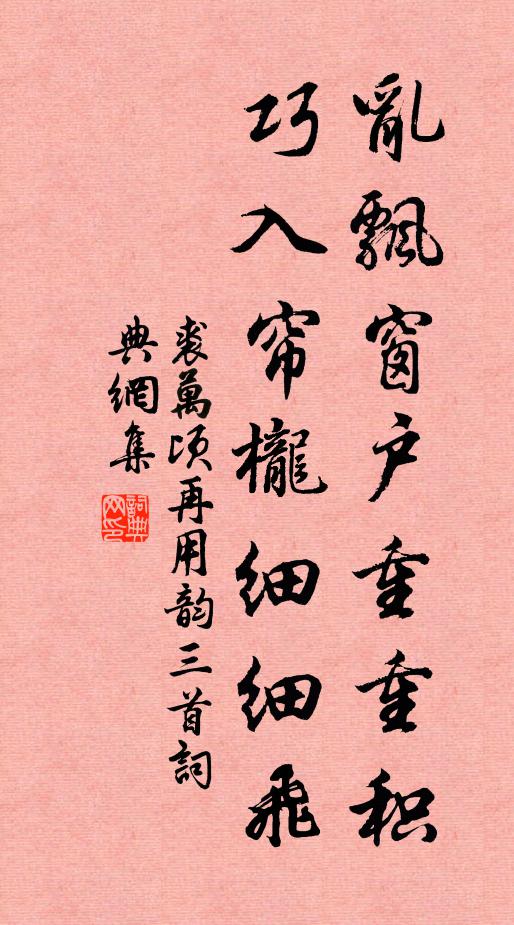 亂飄窗户重重积
巧入帘櫳细细飛
裘萬頃再用韵三首詞
典網集
詞典
网印